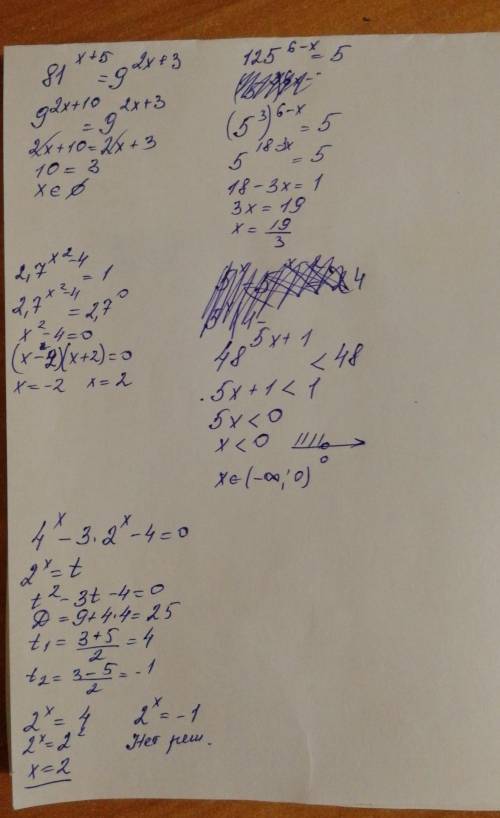 81^{x+5} = 9^{2x+3}
9^{2x+10} = 9^{2x+3}
2x+10=2x+3
10=3
x∈∅
125^{6-x}=5
(5^3)^{6-x}=5
5^{18-3x}=5
18-3x=1
3x=19
x=19/3
2,7^{x^2-4}=1
2,7^{x^2-4}=2,7^0
x^2-4=0
(x-2)(x+2)=0
x=-2 x=2
48^{5x+1}<48
5x+1<1
5x<0
x<0
0
x∈(-∞;0)
4^x-3·2^x-4=0
2^x=t
t^2-3t-4=0
D=9+4·4=25
t_1=(3+5)/2=4
t_2=(3-5)/2=-1
2^x=4 2^x=-1
2^x=2^2 Нет реш.
x=2